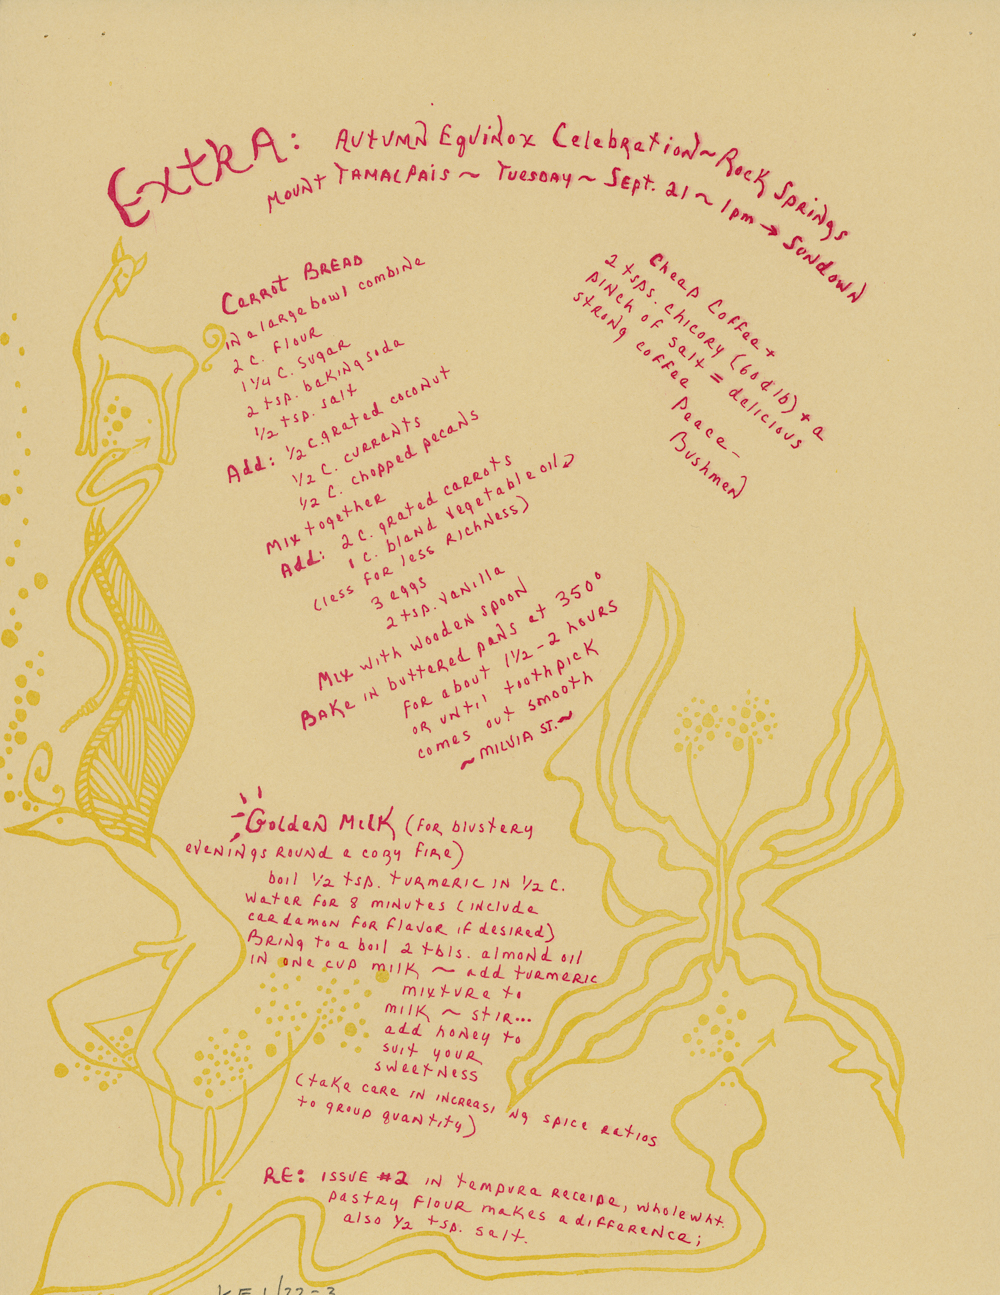 Extra: Autumn Equinox Celebration ~ Rock Springs
Mount Tamalpais ~ Tuesday ~ Sept. 21 ~ 1pm → Sundown
Carrot Bread
in a large bowl combine
2 c. flour
1 1/4 c. sugar
2 tsp. baking soda
1/2 tsp. salt
Add: 1/2 c. grated coconut
1/2 c. currants
1/2 c. chopped pecans
Mix together
Add: 2 c. grated carrots
1 c. bland vegetable oil
(less for less richness)
3 eggs
2 tsp. vanilla
Mix with wooden spoon
Bake in buttered pans at 350°
for about 1 1/2 - 2 hours
or until toothpick
comes out smooth
~ Milvia St. ~
Cheap Coffee +
2 tsps. chicory (60¢ lb) + a
pinch of salt = delicious
strong coffee
Peace -
Bushmen
Golden Milk (for blustery
evenings round a cozy fire)
boil 1/2 tsp. turmeric in 1/2 c.
water for 8 minutes (include
cardamon for flavor if desired)
Bring to a boil 2 tbls. almond oil
in one cup milk ~ add turmeric
mixture to
milk ~ stir...
add honey to
suit your
sweetness
(take care in increasing spice ratios
to group quantity)
RE: issue #2 in tempura receipe, wholewht.
pastry flour makes a difference;
also 1/2 tsp. salt.